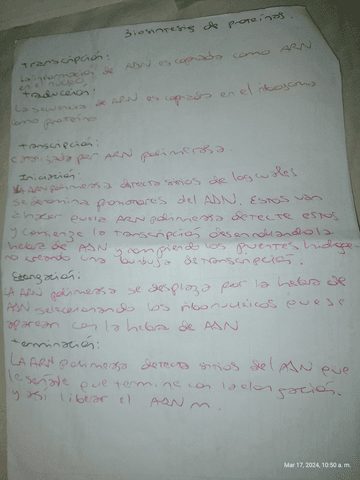 Biosintesis de proteinas.
Transcripción:
La información de ADN es copiada como ARN
en el núcleo
Traducción:
La secuencia de ARN es copiada en el ribosoma
como proteína
Transcripción:
Catalizada por ARN polimerasa
Iniciación:
LA ARN polimerasa detecta sitios de los cuales
se denomina promotores del ADN. Estos van
a hacer que la ARN polimerasa detecte estos
y comienze la transcripción desenrollando la
hebra de ADN y rompiendo los puentes hidroge
no creando una burbuja de transcripción.
Elongación:
LA ARN polimerasa se desplaza por la hebra de
ADN los ribonucleicos que se
aparean con la hebra de ADN
Terminación:
LA ARN polimerasa detecta sitios del ADN que
le señale que termine con la elongación.
y asi liberar el ARN m.
Mar 17, 2024, 10:50 a. m.